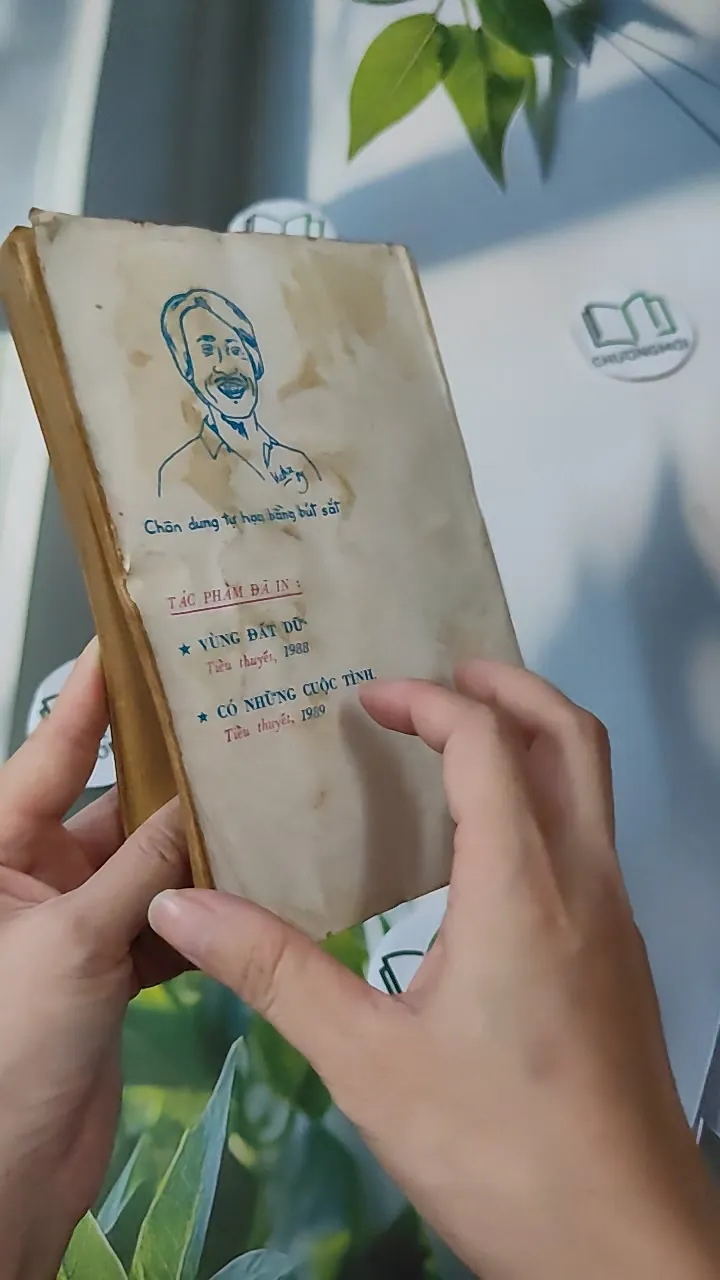 Chân dung tự họa bằng bút sắt
TÁC PHẨM ĐÃ IN :
★ VÙNG ĐẤT DỮ
Tiểu thuyết, 1988
★ CÓ NHỮNG CUỘC TÌNH
Tiểu thuyết, 1989
CHUONGMOI